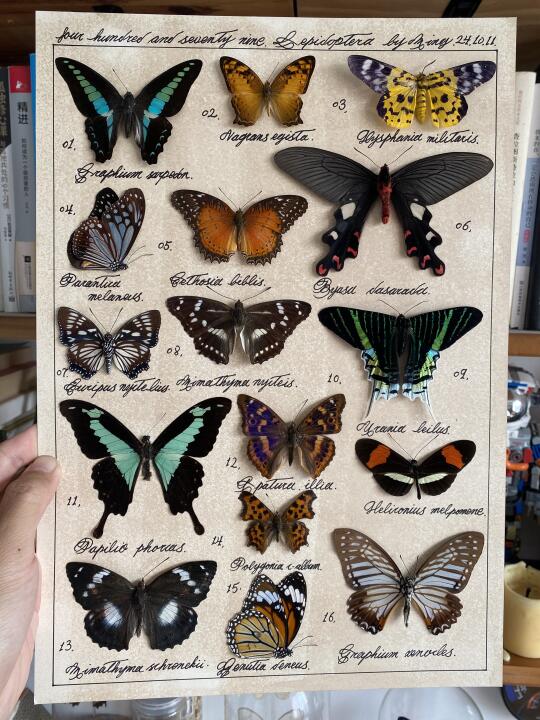 four hundred and seventy nine. Lepidoptera by Miney 24.10.11.
01.
Graphium sarpedon.
02.
Vagrans egista.
03.
Dysphania militaris.
04.
Parantica
melaneus.
05.
Cethosia biblis.
06.
Byasa dasarada.
07.
Euripus nyctelius.
08.
Mimathyma nycteis.
10.
09.
Urania leilus.
11.
Papilio phorcas.
12.
Apatura illia.
Heliconius melpomene.
14.
Polygonia c-album.
13.
Mimathyma schrenckii.
15.
Danutia geneus.
16.
Graphium xenocles.
精进